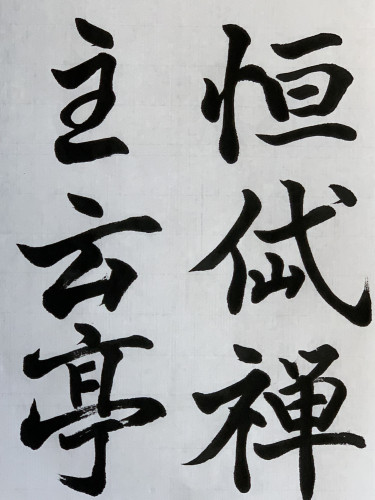 恒岱禅
主云亭